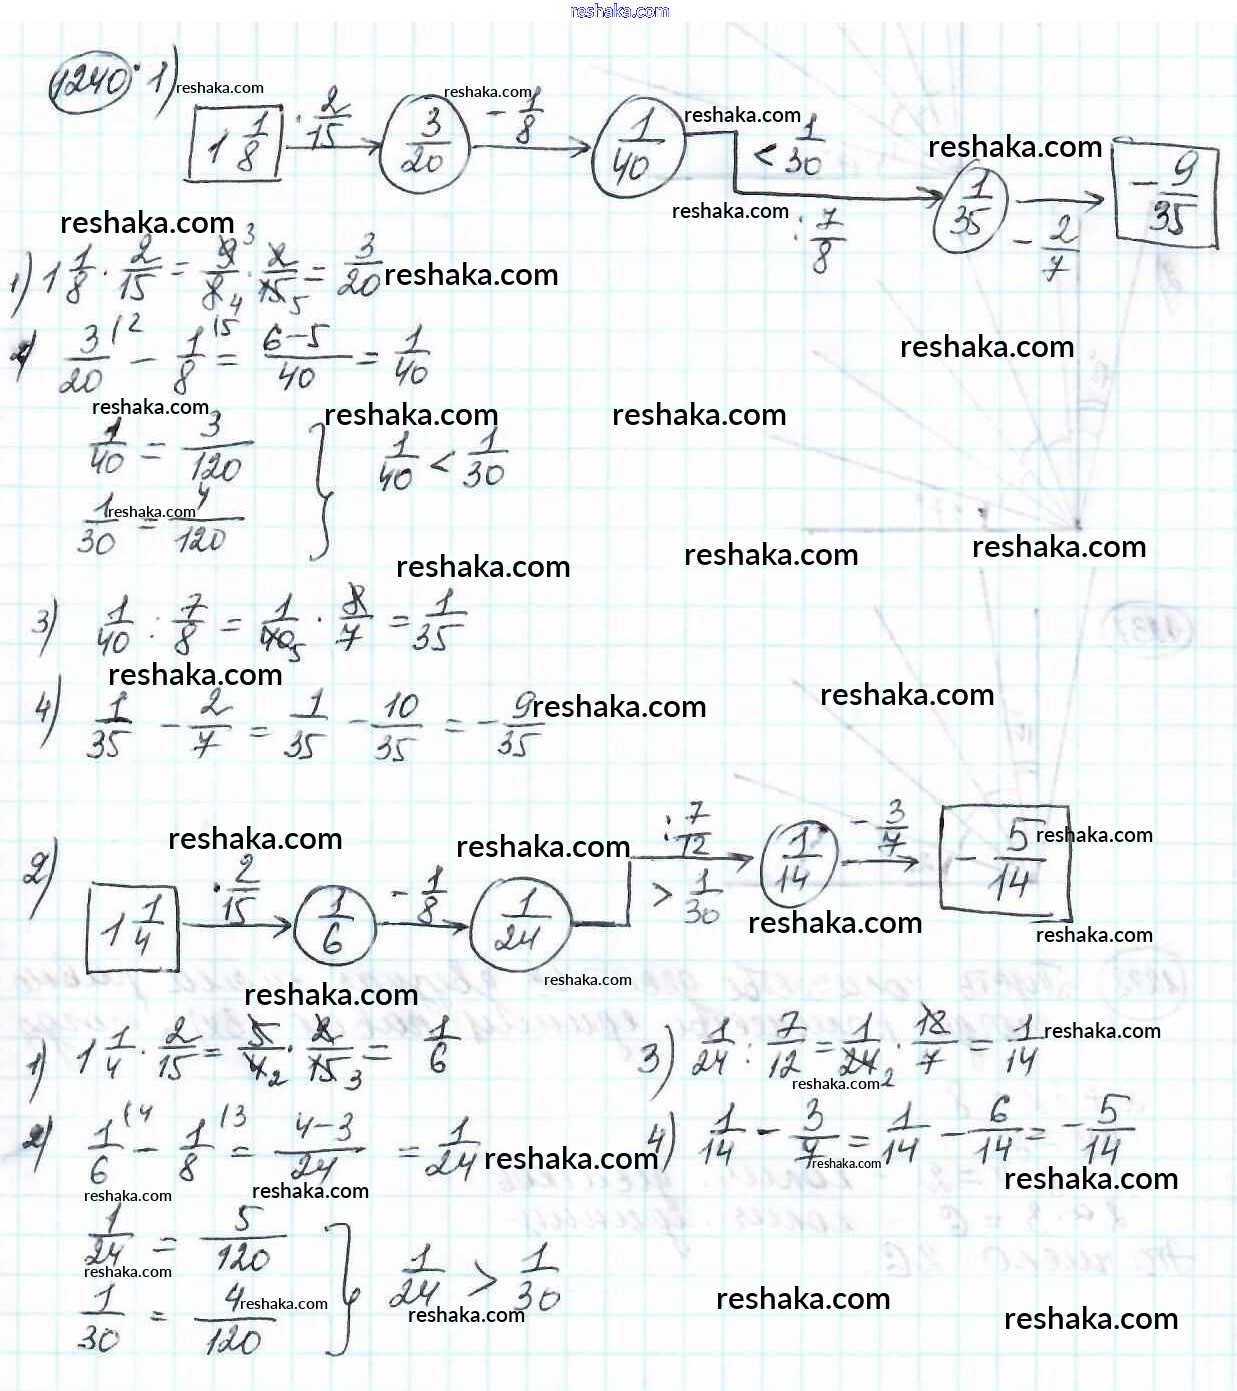 reshaka.com
1240. 1) reshaka.com
1 1/8 · 2/15 → 3/20 - 1/8 → 1/40 < 1/30 : 7/8 → 1/35 - 2/7 → - 9/35
reshaka.com reshaka.com reshaka.com
reshaka.com reshaka.com
1) 1 1/8 · 2/15 = 9/8 · 2/15 = 3/20 reshaka.com
2) 3/20 - 1/8 = 6-5/40 = 1/40 reshaka.com
reshaka.com reshaka.com reshaka.com
1/40 = 3/120 } 1/40 < 1/30
1/30 = 4/120
reshaka.com
reshaka.com reshaka.com reshaka.com
3) 1/40 : 7/8 = 1/40 · 8/7 = 1/35
reshaka.com
4) 1/35 - 2/7 = 1/35 - 10/35 = - 9/35 reshaka.com reshaka.com
reshaka.com reshaka.com reshaka.com
2) 1 1/4 · 2/15 → 1/6 - 1/8 → 1/24 > 1/30 : 7/12 → 1/14 - 3/7 → - 5/14
reshaka.com reshaka.com
reshaka.com reshaka.com
1) 1 1/4 · 2/15 = 5/4 · 2/15 = 1/6
3) 1/24 : 7/12 = 1/24 · 12/7 = 1/14 reshaka.com
reshaka.com
2) 1/6 - 1/8 = 4-3/24 = 1/24 reshaka.com
4) 1/14 - 3/7 = 1/14 - 6/14 = - 5/14
reshaka.com
reshaka.com reshaka.com reshaka.com
1/24 = 5/120 } 1/24 > 1/30
reshaka.com
1/30 = 4/120
reshaka.com reshaka.com reshaka.com reshaka.com